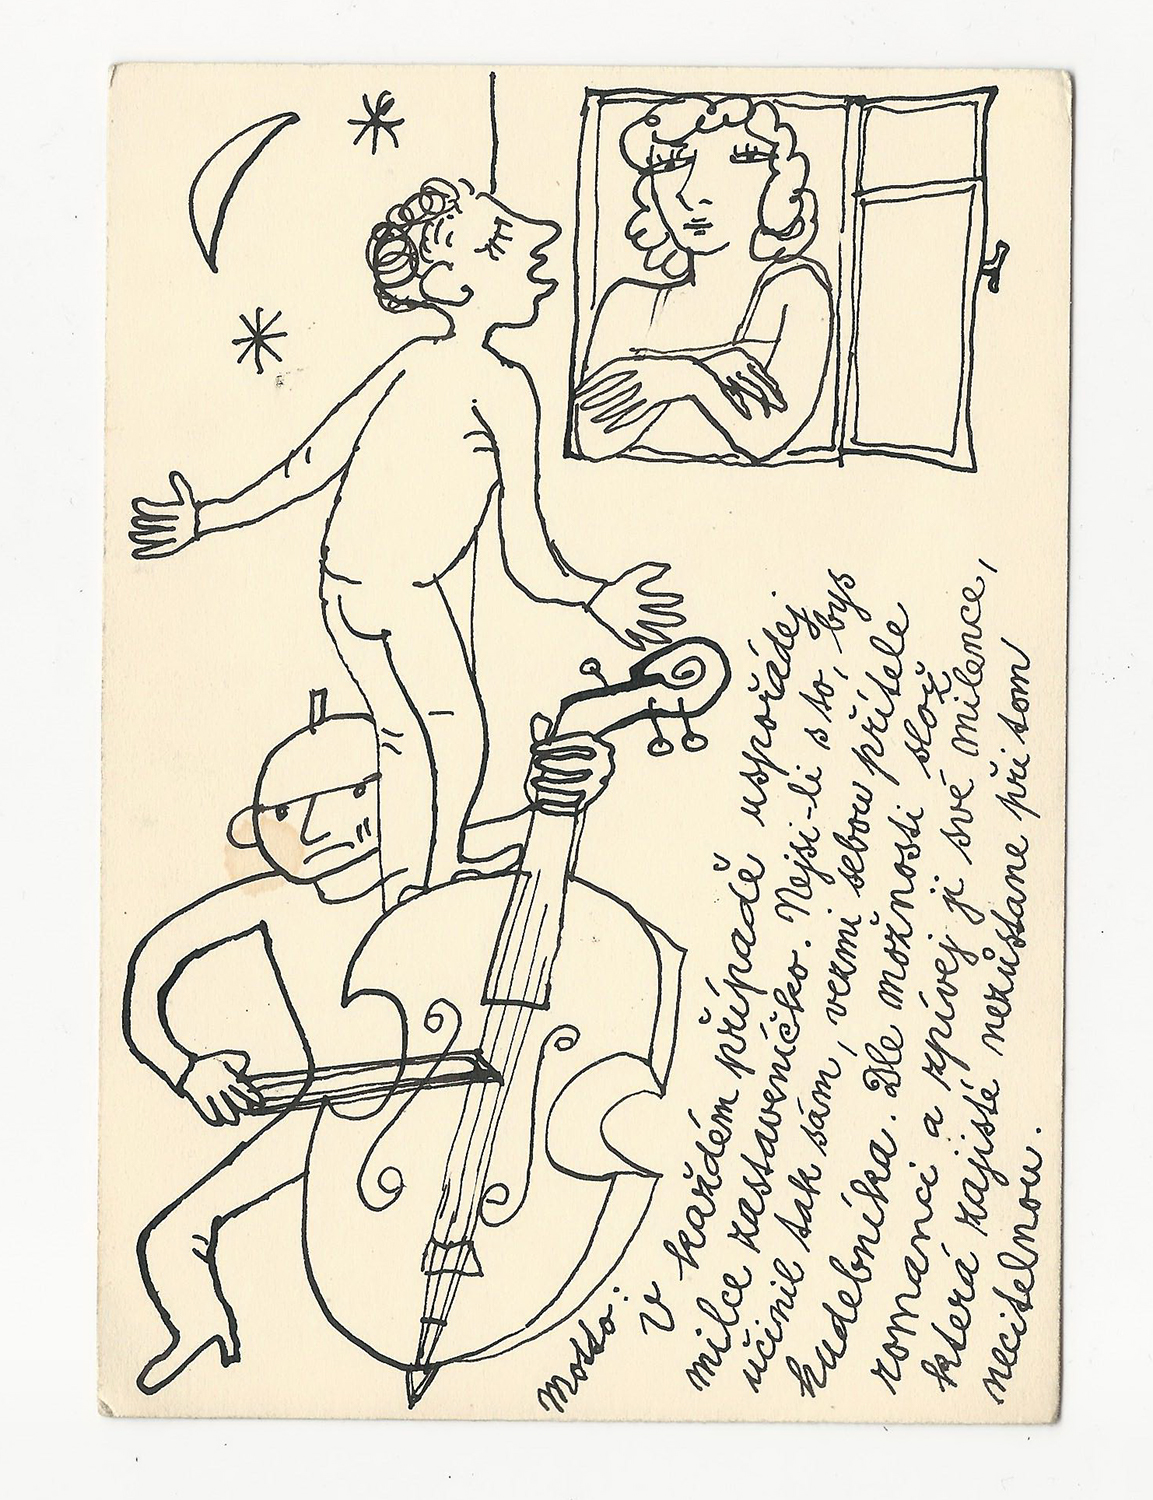 Motto:
V každém případě uspořádej
milce zastaveníčko. Nejsi-li s to, bys
učinil tak sám, vezmi sebou přítele
hudebníka. Dle možnosti slož
romanci a zpívej ji své milence,
která zajisté nezůstane při tom
necitelnou.